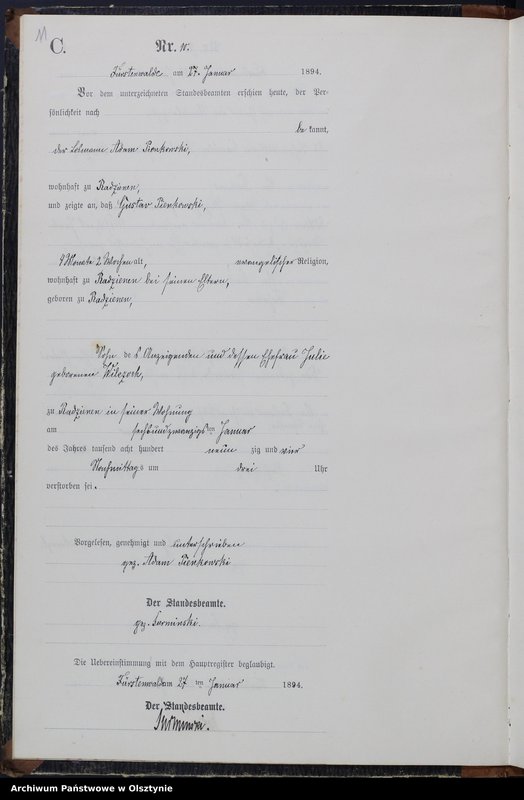 11
C.
Nr. 10.
Fürstenwalde am 27. Januar 1894.
Vor dem unterzeichneten Standesbeamten erschien heute, der Per-
sönlichkeit nach
be kannt,
der Losmann Adam Pienkowski,
wohnhaft zu Radzienen,
und zeigte an, daß Gustav Pienkowski,
4 Monate 2 Wochen alt, evangelischer Religion,
wohnhaft zu Radzienen bei seinen Eltern,
geboren zu Radzienen,
Sohn des Anzeigenden und dessen Ehefrau Julie
geborenen
zu Radzienen in seiner Wohnung
am sechsundzwanzigsten Januar
des Jahres tausend acht hundert neun zig und vier
Nachmittags um drei Uhr
verstorben sei.
Vorgelesen, genehmigt und unterschrieben
gez. Adam Pienkowski
Der Standesbeamte.
gez. Surminski.
Die Uebereinstimmung mit dem Hauptregister beglaubigt.
Fürstenwalde am 27 ten Januar 1894.
Der Standesbeamte.
Surminski.
Archiwum Państwowe w Olsztynie